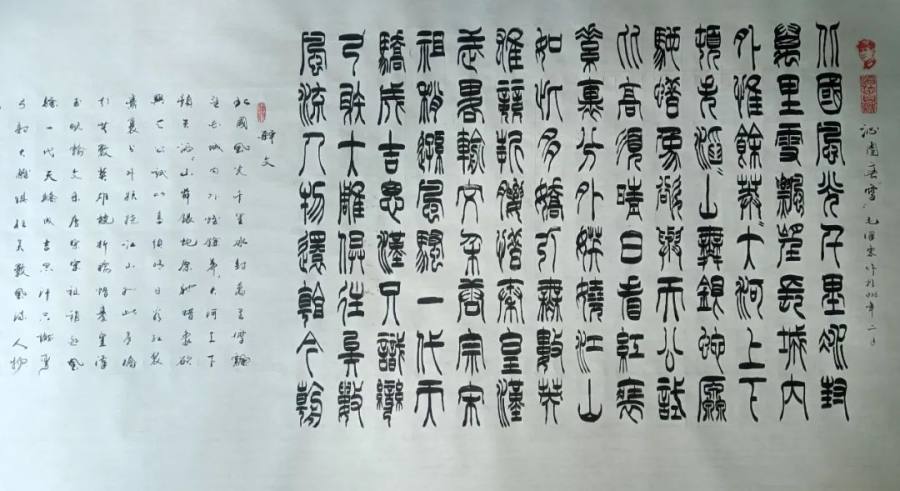 沁園春雪 毛澤東作於 年二月
北國風光千里冰封
萬里雪飄望長城內
外惟餘莽〻大河上下
頓失滔〻山舞銀蛇原
馳蠟象欲與天公試
比高須晴日看紅裝
素裹分外妖嬈江山
如此多嬌引無數英
雄競折腰惜秦皇漢
武略輸文采唐宗宋
祖稍遜風騷一代天
驕成吉思汗只識彎
弓射大雕俱往矣數
風流人物還看今朝
釋文
北國風光千里冰封萬里雪飄
望長城內外惟餘莽〻大河上下
頓失滔〻山舞銀蛇原馳蠟象欲
與天公試比高須晴日看紅裝
素裹分外妖嬈江山如此多嬌
引無數英雄競折腰惜秦皇漢
武略輸文采唐宗宋祖稍遜風
騷一代天驕成吉思汗只識彎
弓射大雕俱往矣數風流人物